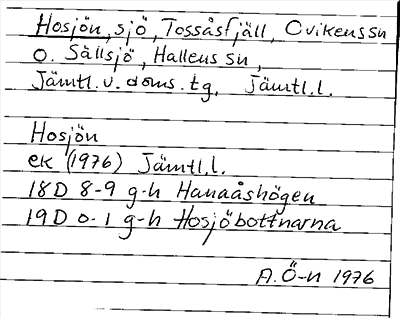 Hosjön, sjö, Tossåsfjäll, Ovikens sn
o. Sällsjö, Hallens sn,
Jämtl.v.doms.tg, Jämtl.l.
Hosjön
ek (1976) Jämtl.l.
18D 8-9 g-h Hanaåshögen
19D 0-1 g-h Hosjöbottnarna
A.Ö-n 1976